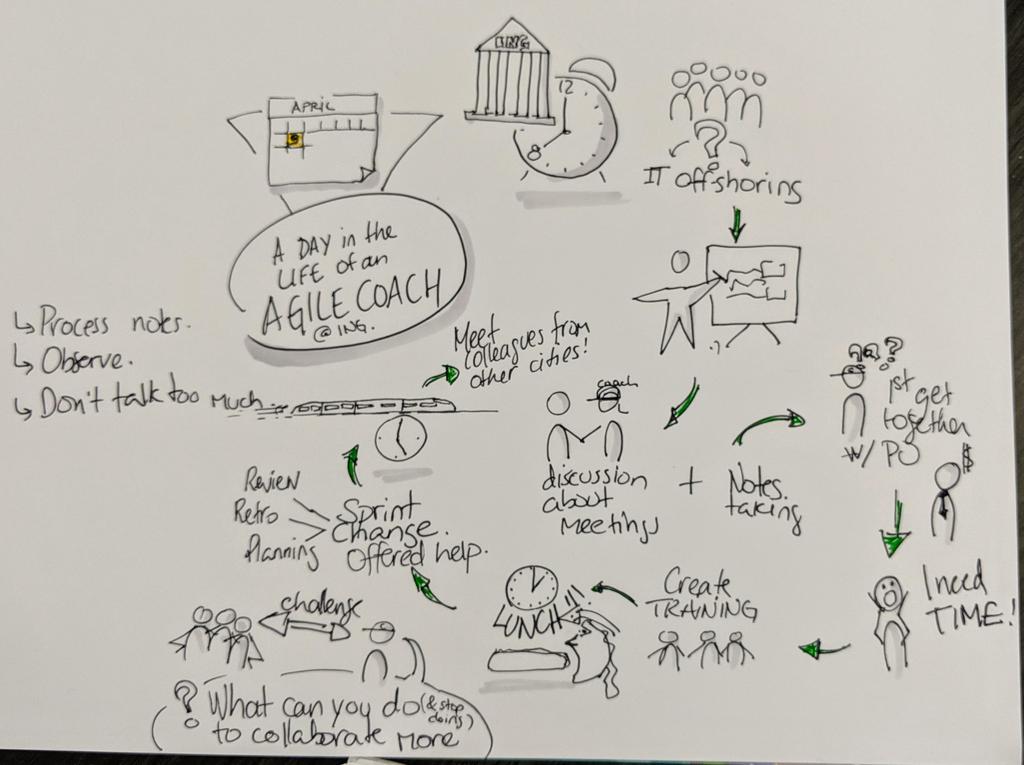 APRIL
9
A DAY in the
LIFE of an
AGILE COACH
@ ING.
ING
12
8
?
IT offshoring
↳ Process notes.
↳ Observe.
↳ Don't talk too much.
Meet
colleagues from
other cities!
coach
discussion
about
meetings
+
Notes
taking
?
1st get
together
w/ PO
$
I need
TIME!
Create
TRAINING
LUNCH
Review
Retro
Planning
Sprint
Change.
Offered help.
challenge
? What can you do (& stop
doing)
to collaborate more